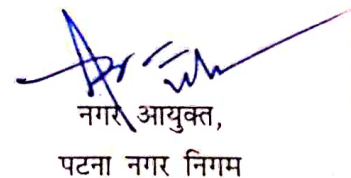 नगर आयुक्त,
पटना नगर निगम